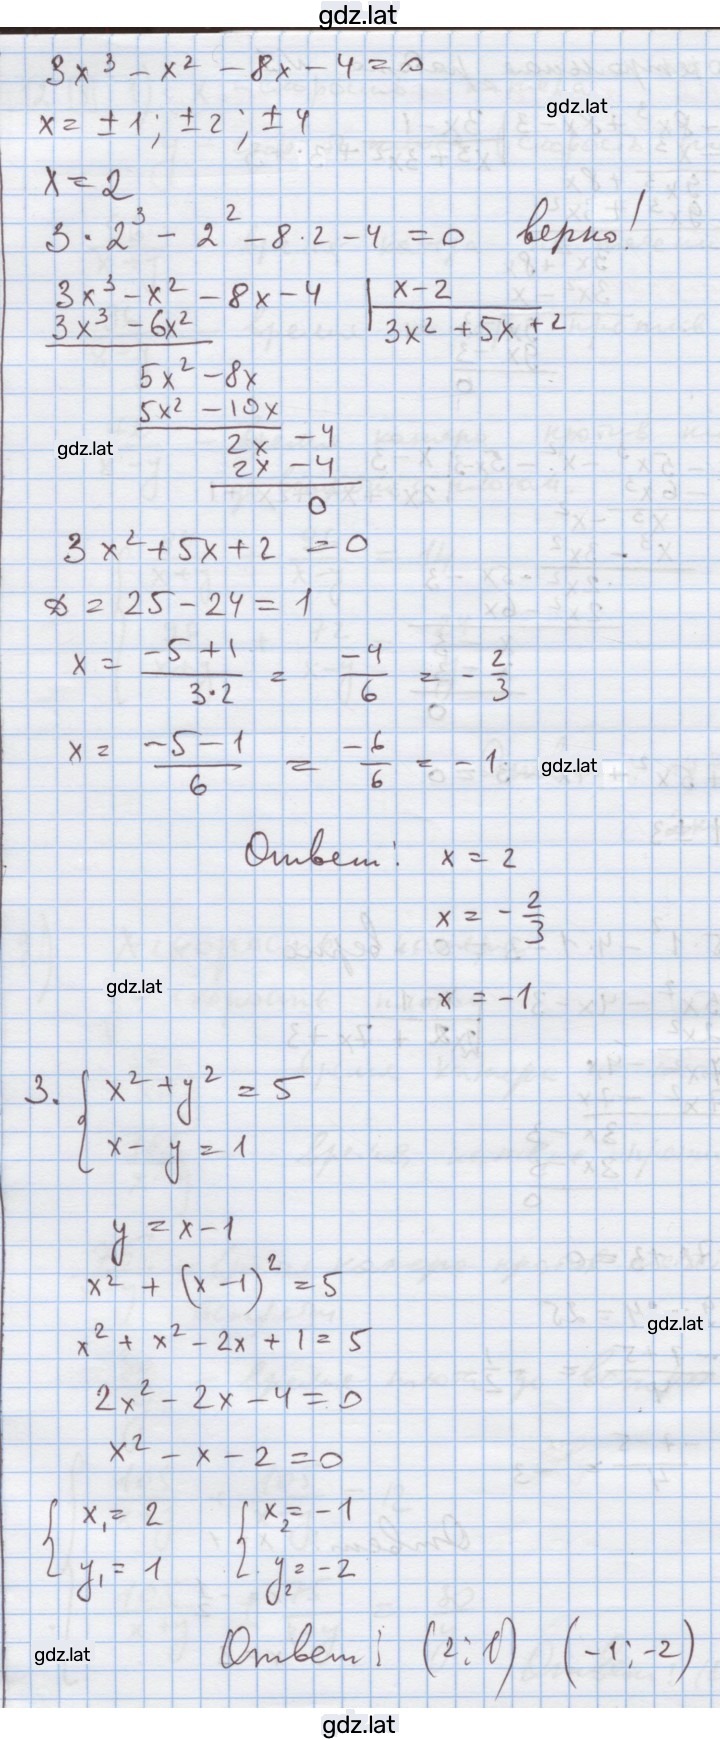 gdz.lat
3x³ - x² - 8x - 4 = 0
gdz.lat
x = ±1; ±2; ±4
x = 2
3·2³ - 2² - 8·2 - 4 = 0 верно!
3x³ - x² - 8x - 4 | x - 2
3x³ - 6x² 3x² + 5x + 2
5x² - 8x
5x² - 10x
gdz.lat
2x - 4
2x - 4
0
3x² + 5x + 2 = 0
D = 25 - 24 = 1
x = (-5 + 1)/(3·2) = -4/6 = -2/3
x = (-5 - 1)/6 = -6/6 = -1
gdz.lat
Ответ: x = 2
x = -2/3
gdz.lat
x = -1
3. { x² + y² = 5
x - y = 1
y = x - 1
x² + (x - 1)² = 5
gdz.lat
x² + x² - 2x + 1 = 5
2x² - 2x - 4 = 0
x² - x - 2 = 0
{ x₁ = 2 { x₂ = -1
y₁ = 1 y₂ = -2
gdz.lat
Ответ: (2; 1) (-1; -2)
gdz.lat